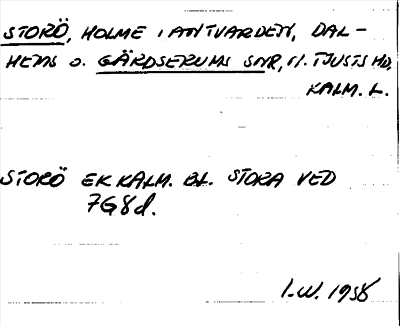 STORÖ, HOLME I ANTVARDEN, DAL-
HEMS O. GÄRDSERUMS SNR, N. TJUSTS HD,
KALM. L.
STORÖ EK KALM. BL. STORA VED
7G8d.
I.W. 1958